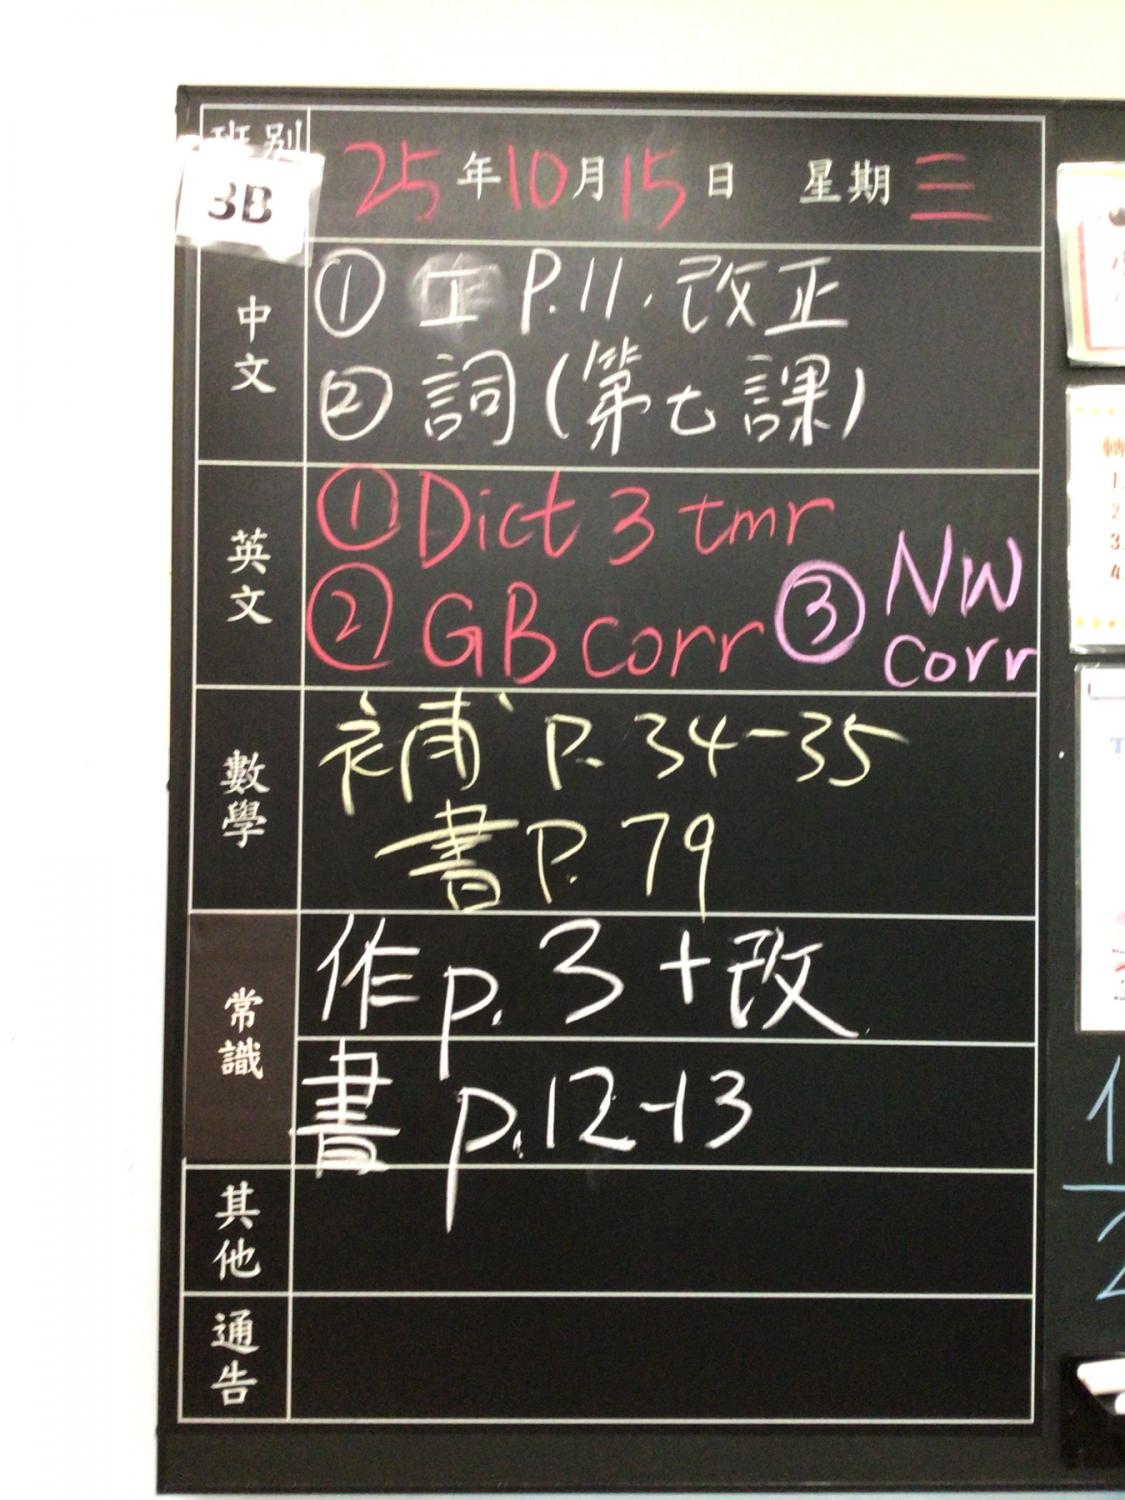 班別
3B
25年10月15日 星期三
中文
① P.11. 改正
② 詞(第七課)
英文
① Dict 3 tmr
② GB corr ③ NW corr
數學
補 P. 34-35
書 P. 79
常識
作 p. 3 + 改
書 p. 12-13
其他
通告